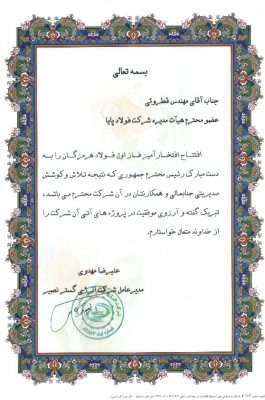 بسمه تعالی
جناب آقای مهندس قطروئی
عضو محترم هیأت مدیره شرکت فولاد پایا
افتتاح افتخارآمیز فاز اول فولاد هرمزگان را به
دست مبارک رئیس محترم جمهوری که نتیجه تلاش وکوشش
مدیریتی جنابعالی و همکارنتان در آن شرکت محترم می باشد ،
تبریک گفته و آرزوی موفقیت در پروژه های آتی آن شرکت را
از خداوند متعال خواستارم.
علیرضا مهدوی
مدیرعامل شرکت انرژی گستر نصیر